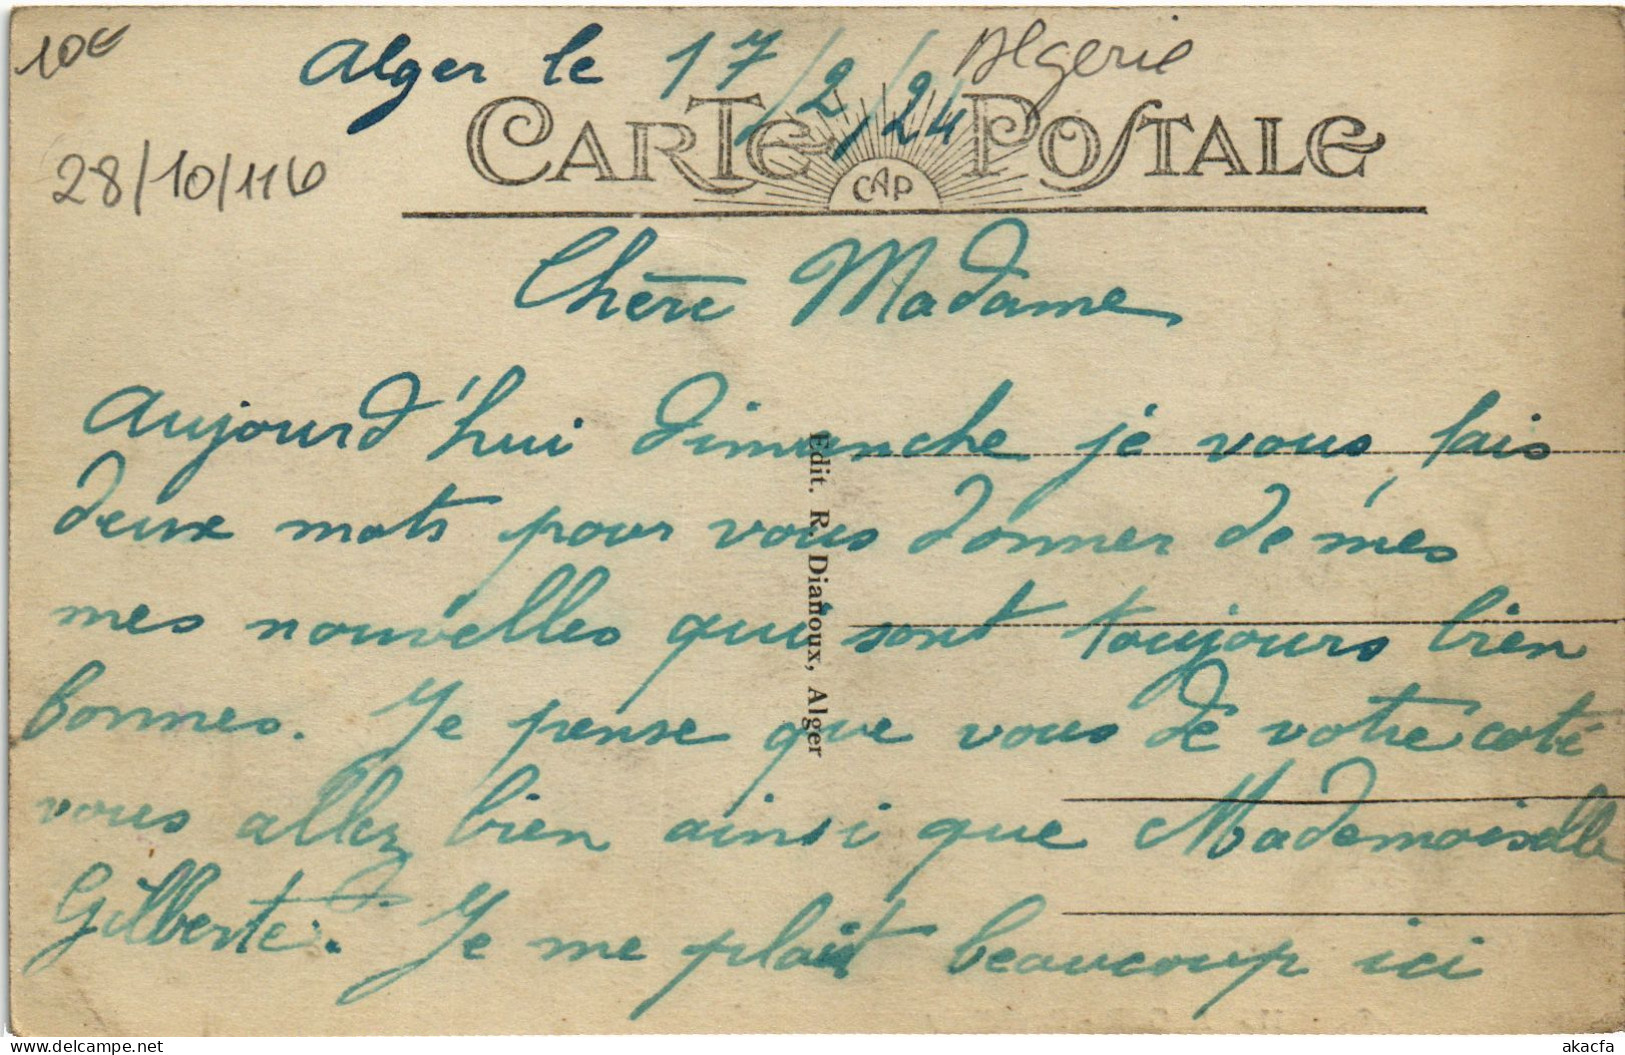 10€
Alger le 17/2/24
Algerie
28/10/116
CARTE POSTALE
CAP
Chère Madame
Aujourd'hui dimanche je vous fais
deux mots pour vous donner de mes
mes nouvelles qui sont toujours bien
bonnes. Je pense que vous de votre coté
vous allez bien ainsi que Mademoiselle
Gilberte. Je me plait beaucoup ici
Edit. R. Dianoux, Alger
akacfa